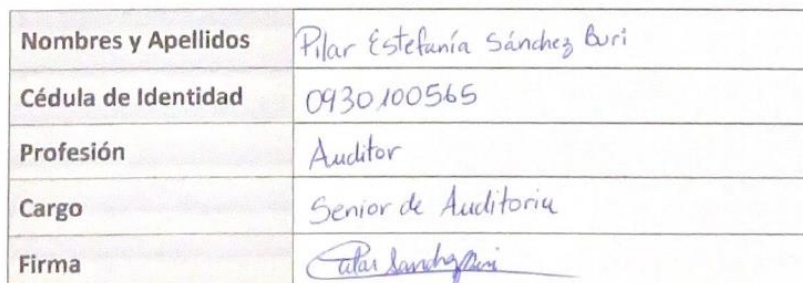 Nombres y Apellidos Pilar Estefanía Sánchez Buri
Cédula de Identidad 0930100565
Profesión Auditor
Cargo Senior de Auditoria
Firma Pilar Sanchez Buri